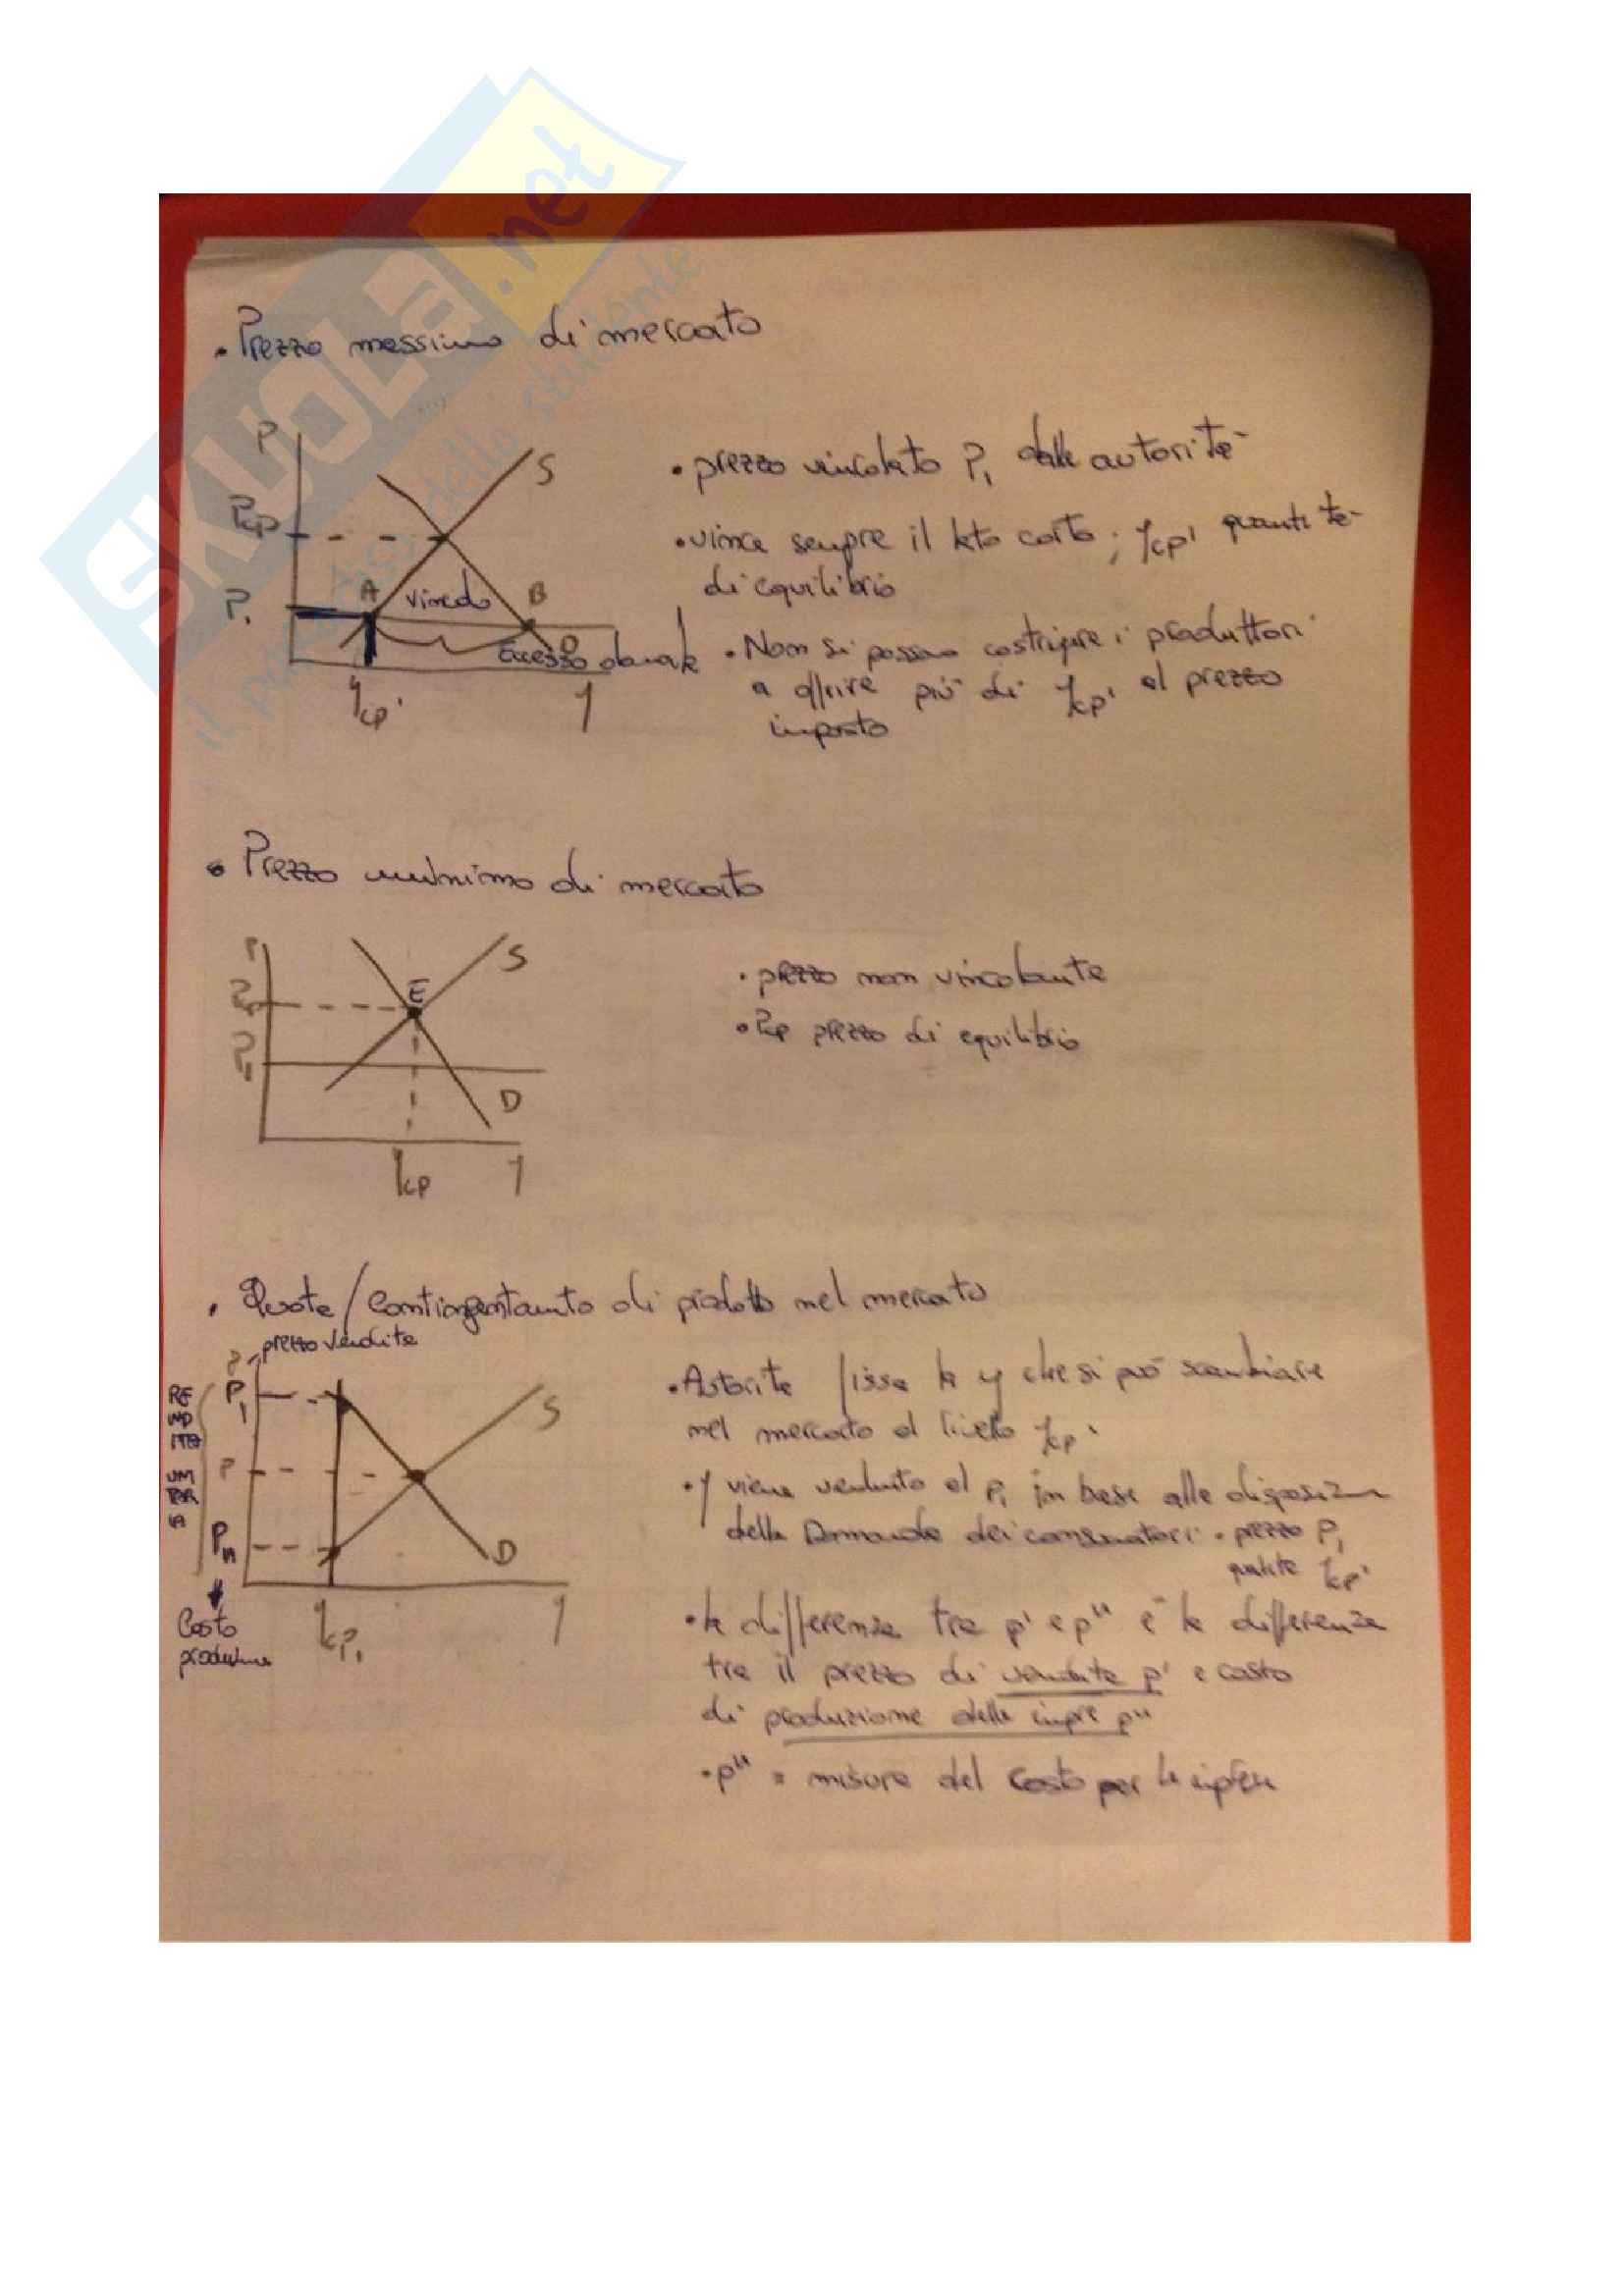 SKUOLA.net
il paradiso dello studente
• Prezzo massimo di mercato
P
Pcp
P1
S
A
vincolo
B
D
eccesso domanda
ycp'
y
• prezzo vincolato P1 dalle autorità
• vince sempre il lato corto; ycp' quantità
di equilibrio
• Non si possono costringere i produttori
a offrire più di ycp' al prezzo
imposto
• Prezzo minimo di mercato
P
Pcp
P1
E
S
D
ycp
y
• prezzo non vincolante
• Pcp prezzo di equilibrio
• Quote/Contingentamento di prodotto nel mercato
prezzo vendita
P
P1
P
P"
RE
ND
ITA
UN
ITAR
IA
Costo
produzione
S
D
ycp1
y
• Autorità fissa la y che si può scambiare
nel mercato al livello ycp'
• y viene venduto al P1 in base alla disposizione
della Domanda dei consumatori • prezzo P1
quantità ycp'
• la differenza tra p' e p" è la differenza
tra il prezzo di vendita p' e costo
di produzione delle imprese p"
• p" = misura del costo per le imprese